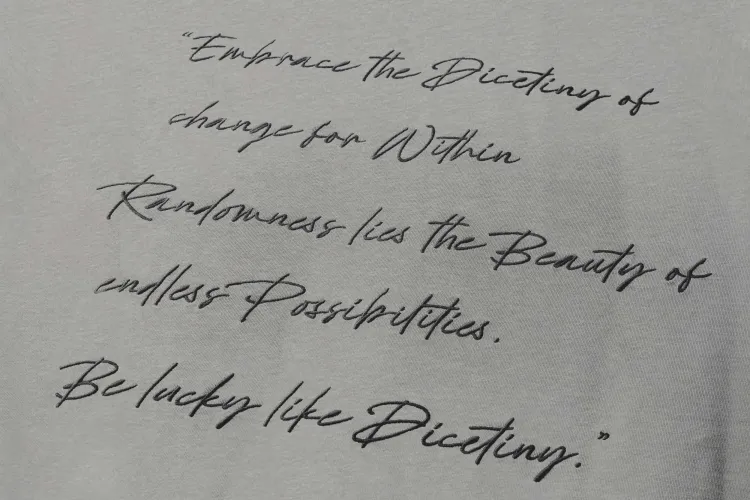 “Embrace the Dicetiny of
change for Within
Randomness lies the Beauty of
endless Possibilities.
Be lucky like Dicetiny.”